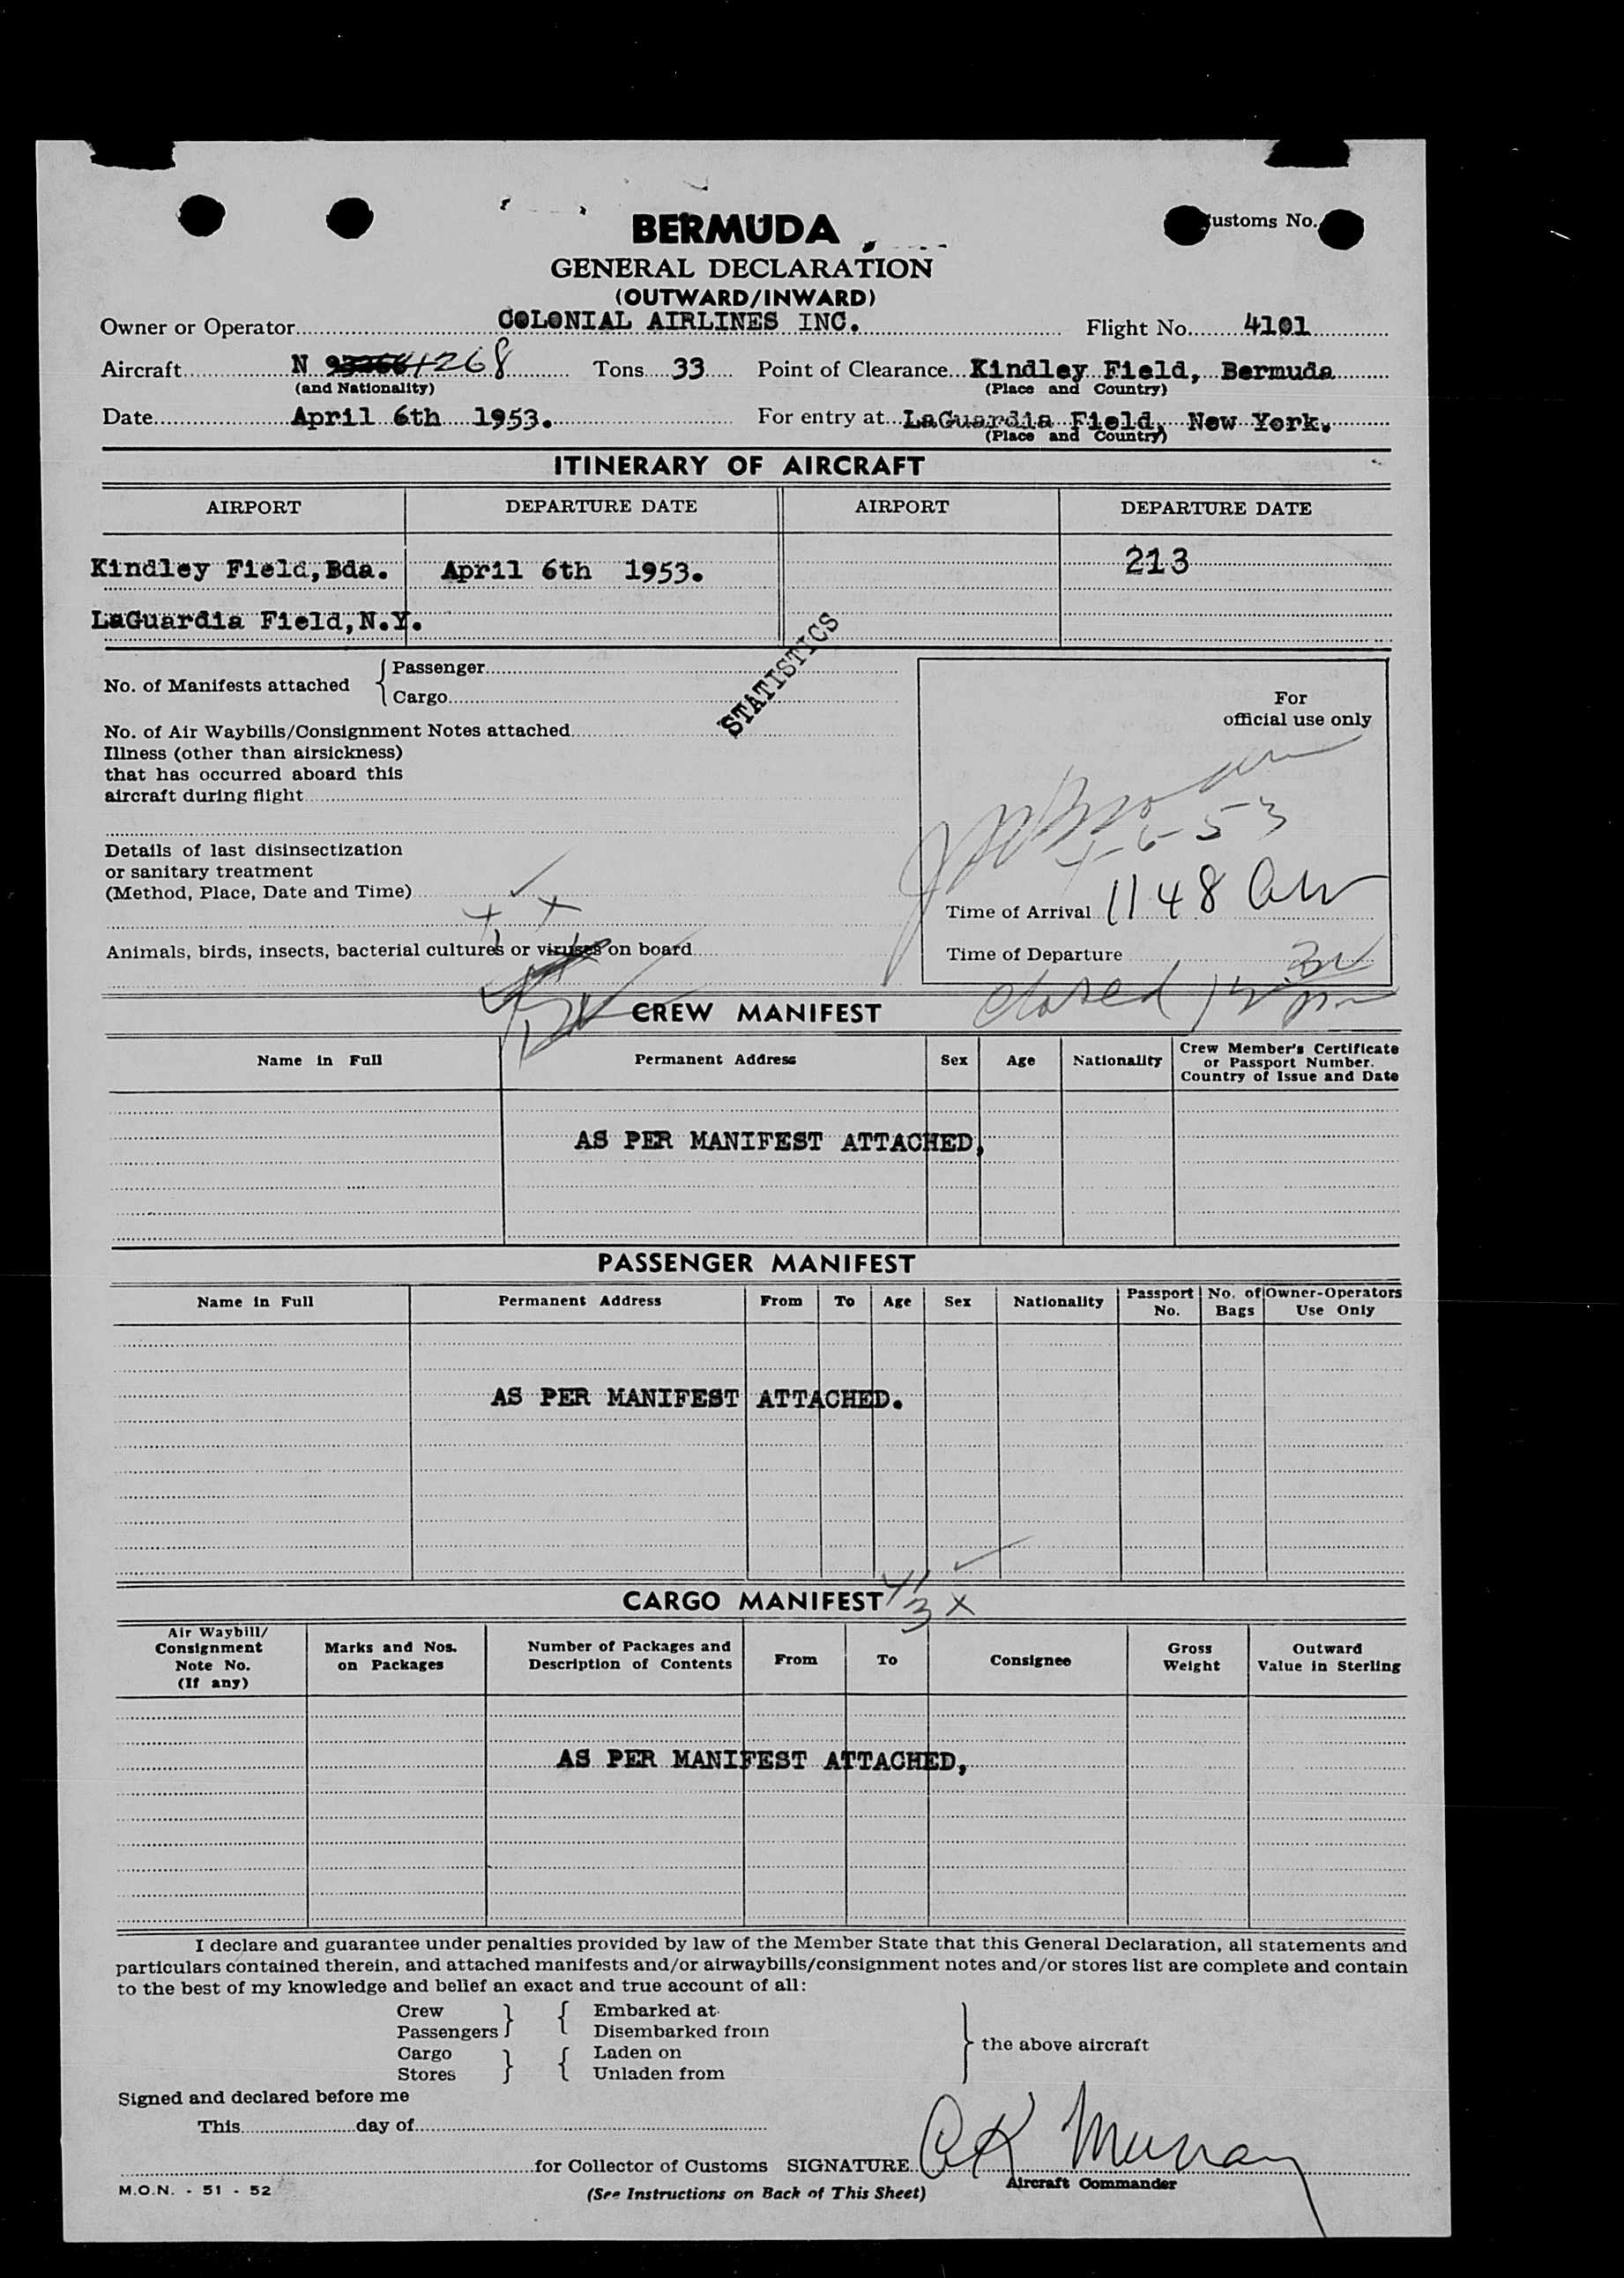 ustoms No.
BERMUDA
GENERAL DECLARATION
(OUTWARD/INWARD)
Owner or Operator COLONIAL AIRLINES INC. Flight No. 4101
Aircraft N 4268 Tons 33 Point of Clearance Kindley Field, Bermuda
(and Nationality) (Place and Country)
Date April 6th 1953. For entry at LaGuardia Field, New York.
(Place and Country)
ITINERARY OF AIRCRAFT
AIRPORT DEPARTURE DATE AIRPORT DEPARTURE DATE
Kindley Field,Bda. April 6th 1953. 213
LaGuardia Field,N.Y.
STATISTICS
No. of Manifests attached { Passenger
Cargo
No. of Air Waybills/Consignment Notes attached
Illness (other than airsickness)
that has occurred aboard this
aircraft during flight
Details of last disinsectization
or sanitary treatment
(Method, Place, Date and Time)
Animals, birds, insects, bacterial cultures or viruses on board
For
official use only
4-6-53
Time of Arrival 1148 am
Time of Departure
closed
CREW MANIFEST
Name in Full Permanent Address Sex Age Nationality Crew Member's Certificate
or Passport Number.
Country of Issue and Date
AS PER MANIFEST ATTACHED,
PASSENGER MANIFEST
Name in Full Permanent Address From To Age Sex Nationality Passport No. No. of Bags Owner-Operators Use Only
AS PER MANIFEST ATTACHED.
CARGO MANIFEST
Air Waybill/ Consignment Note No. (If any) Marks and Nos. on Packages Number of Packages and Description of Contents From To Consignee Gross Weight Outward Value in Sterling
AS PER MANIFEST ATTACHED,
I declare and guarantee under penalties provided by law of the Member State that this General Declaration, all statements and
particulars contained therein, and attached manifests and/or airwaybills/consignment notes and/or stores list are complete and contain
to the best of my knowledge and belief an exact and true account of all:
Crew } { Embarked at
Passengers Disembarked from
Cargo } { Laden on
Stores Unladen from
} the above aircraft
Signed and declared before me
This day of
for Collector of Customs SIGNATURE Murray
Aircraft Commander
M.O.N. - 51 - 52
(See Instructions on Back of This Sheet)